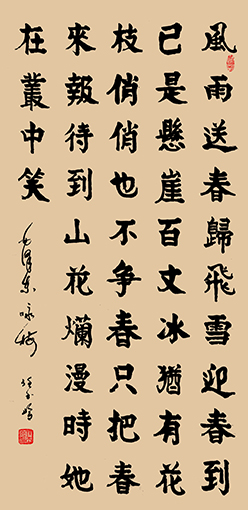 風雨送春歸飛雪迎春到
已是懸崖百丈冰猶有花
枝俏俏也不爭春只把春
來報待到山花爛漫時她
在叢中笑
毛澤東詠梅